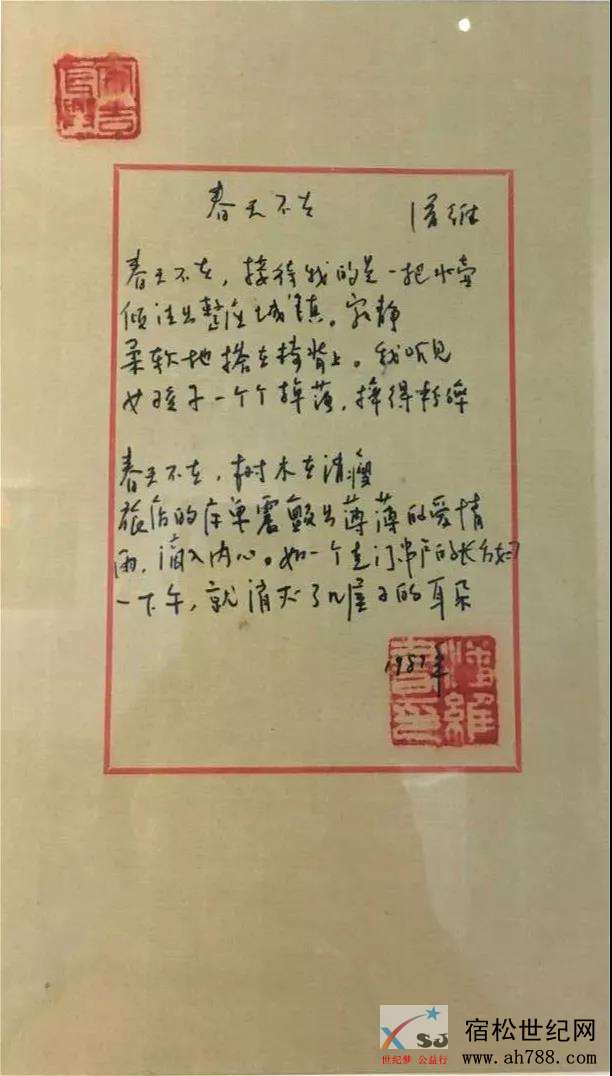 春天不在　潘维
春天不在，接待我的是一把水壶
倾注出整座城镇。寂静
柔软地搭在椅背上。我听见
女孩子一个个掉落，摔得粉碎
春天不在，树木在消瘦
旅店的床单震颤出薄薄的爱情
雨，滴入内心。如一个走门串户的长舌妇
一下午，就消灭了几屋子的耳朵
1987年
潘維
XSJ
世纪梦 公益行
宿松世纪网
www.ah788.com